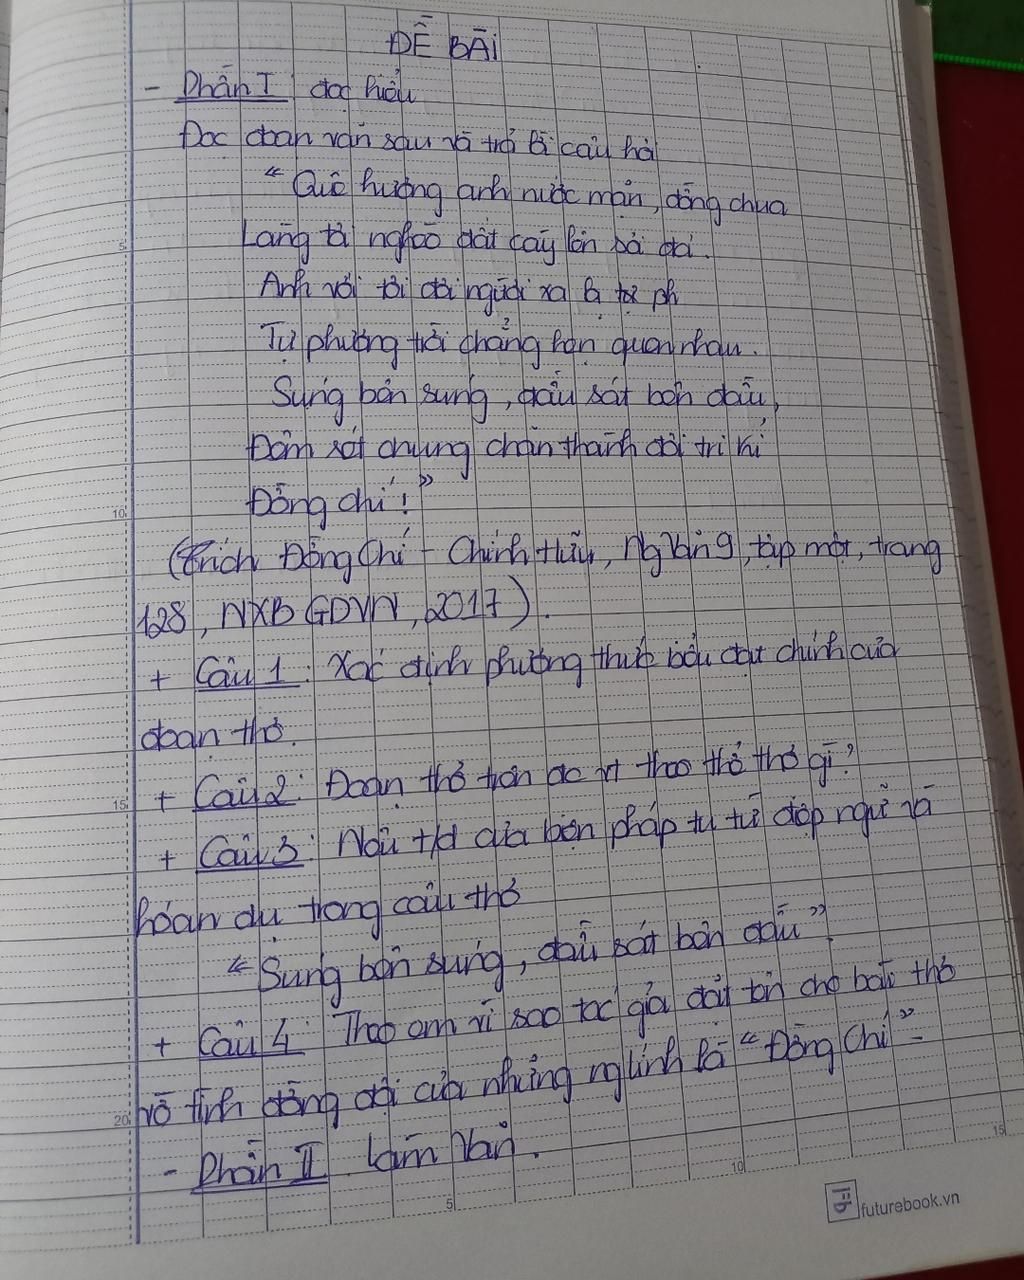 ĐỀ BÀI
- Phần I đọc hiểu
Đọc đoạn văn sau và trả lời câu hỏi
"Quê hương anh nước mặn, đồng chua
Làng tôi nghèo đất cày lên sỏi đá.
Anh với tôi đôi người xa lạ tự ph
Tự phương trời chẳng hẹn quen nhau.
Súng bên súng, đầu sát bên đầu,
Đêm rét chung chăn thành đôi tri kỉ
Đồng chí!"
(Trích Đồng Chí - Chính Hữu, Ng Văn 9, tập một, trang
128, NXB GDVN, 2017).
+ Câu 1: Xác định phương thức biểu đạt chính của
đoạn thơ.
+ Câu 2: Đoạn thơ trên đc vt theo thể thơ gì?
+ Câu 3: Nêu t/d của biện pháp tu từ điệp ngữ và
hoán dụ trong câu thơ
"Súng bên súng, đầu sát bên đầu".
+ Câu 4: Theo em vì sao tác giả đặt tên cho bài thơ
về tình đồng đội của những ng lính là "Đồng Chí"
- Phần II Làm Văn.
5
10
15
20
5
10
15
futurebook.vn